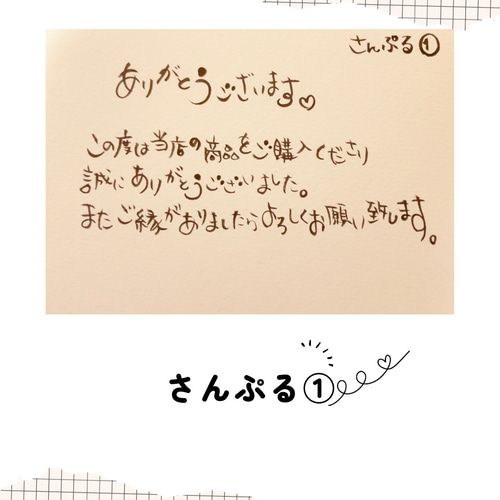 さんぷる①
ありがとうございます♡
この度は当店の商品をご購入くださり
誠にありがとうございました。
またご縁がありましたらよろしくお願い致します。
さんぷる①